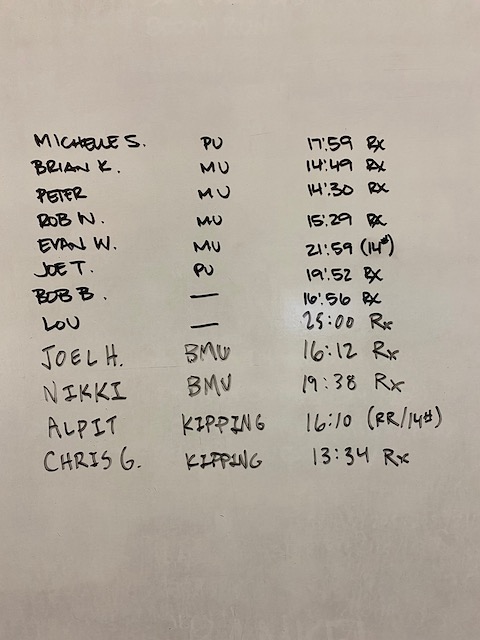 MICHELLE S. PU 17:59 Rx
BRIAN K. MU 14:49 Rx
PETER MU 14:30 Rx
ROB W. MU 15:29 Rx
EVAN W. MU 21:59 (14#)
JOE T. PU 19:52 Rx
BOB B. — 16:56 Rx
LOU — 25:00 Rx
JOEL H. BMU 16:12 Rx
NIKKI BMU 19:38 Rx
ALPIT KIPPING 16:10 (RR/14#)
CHRIS G. KIPPING 13:34 Rx